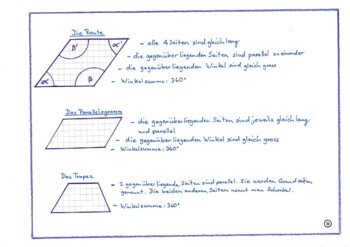 Die Raute
α' β' α β
- alle 4 Seiten sind gleich lang
- die gegenüberliegenden Seiten sind parallel zueinander
- die gegenüberliegenden Winkel sind gleich gross
- Winkelsumme: 360°
Das Parallelogramm
- die gegenüberliegenden Seiten sind jeweils gleich lang
und parallel
- die gegenüberliegenden Winkel sind gleich gross
- Winkelsumme: 360°
Das Trapez
- 2 gegenüberliegende Seiten sind parallel. Sie werden Grundseiten
genannt. Die beiden anderen Seiten nennt man Schenkel.
- Winkelsumme: 360°